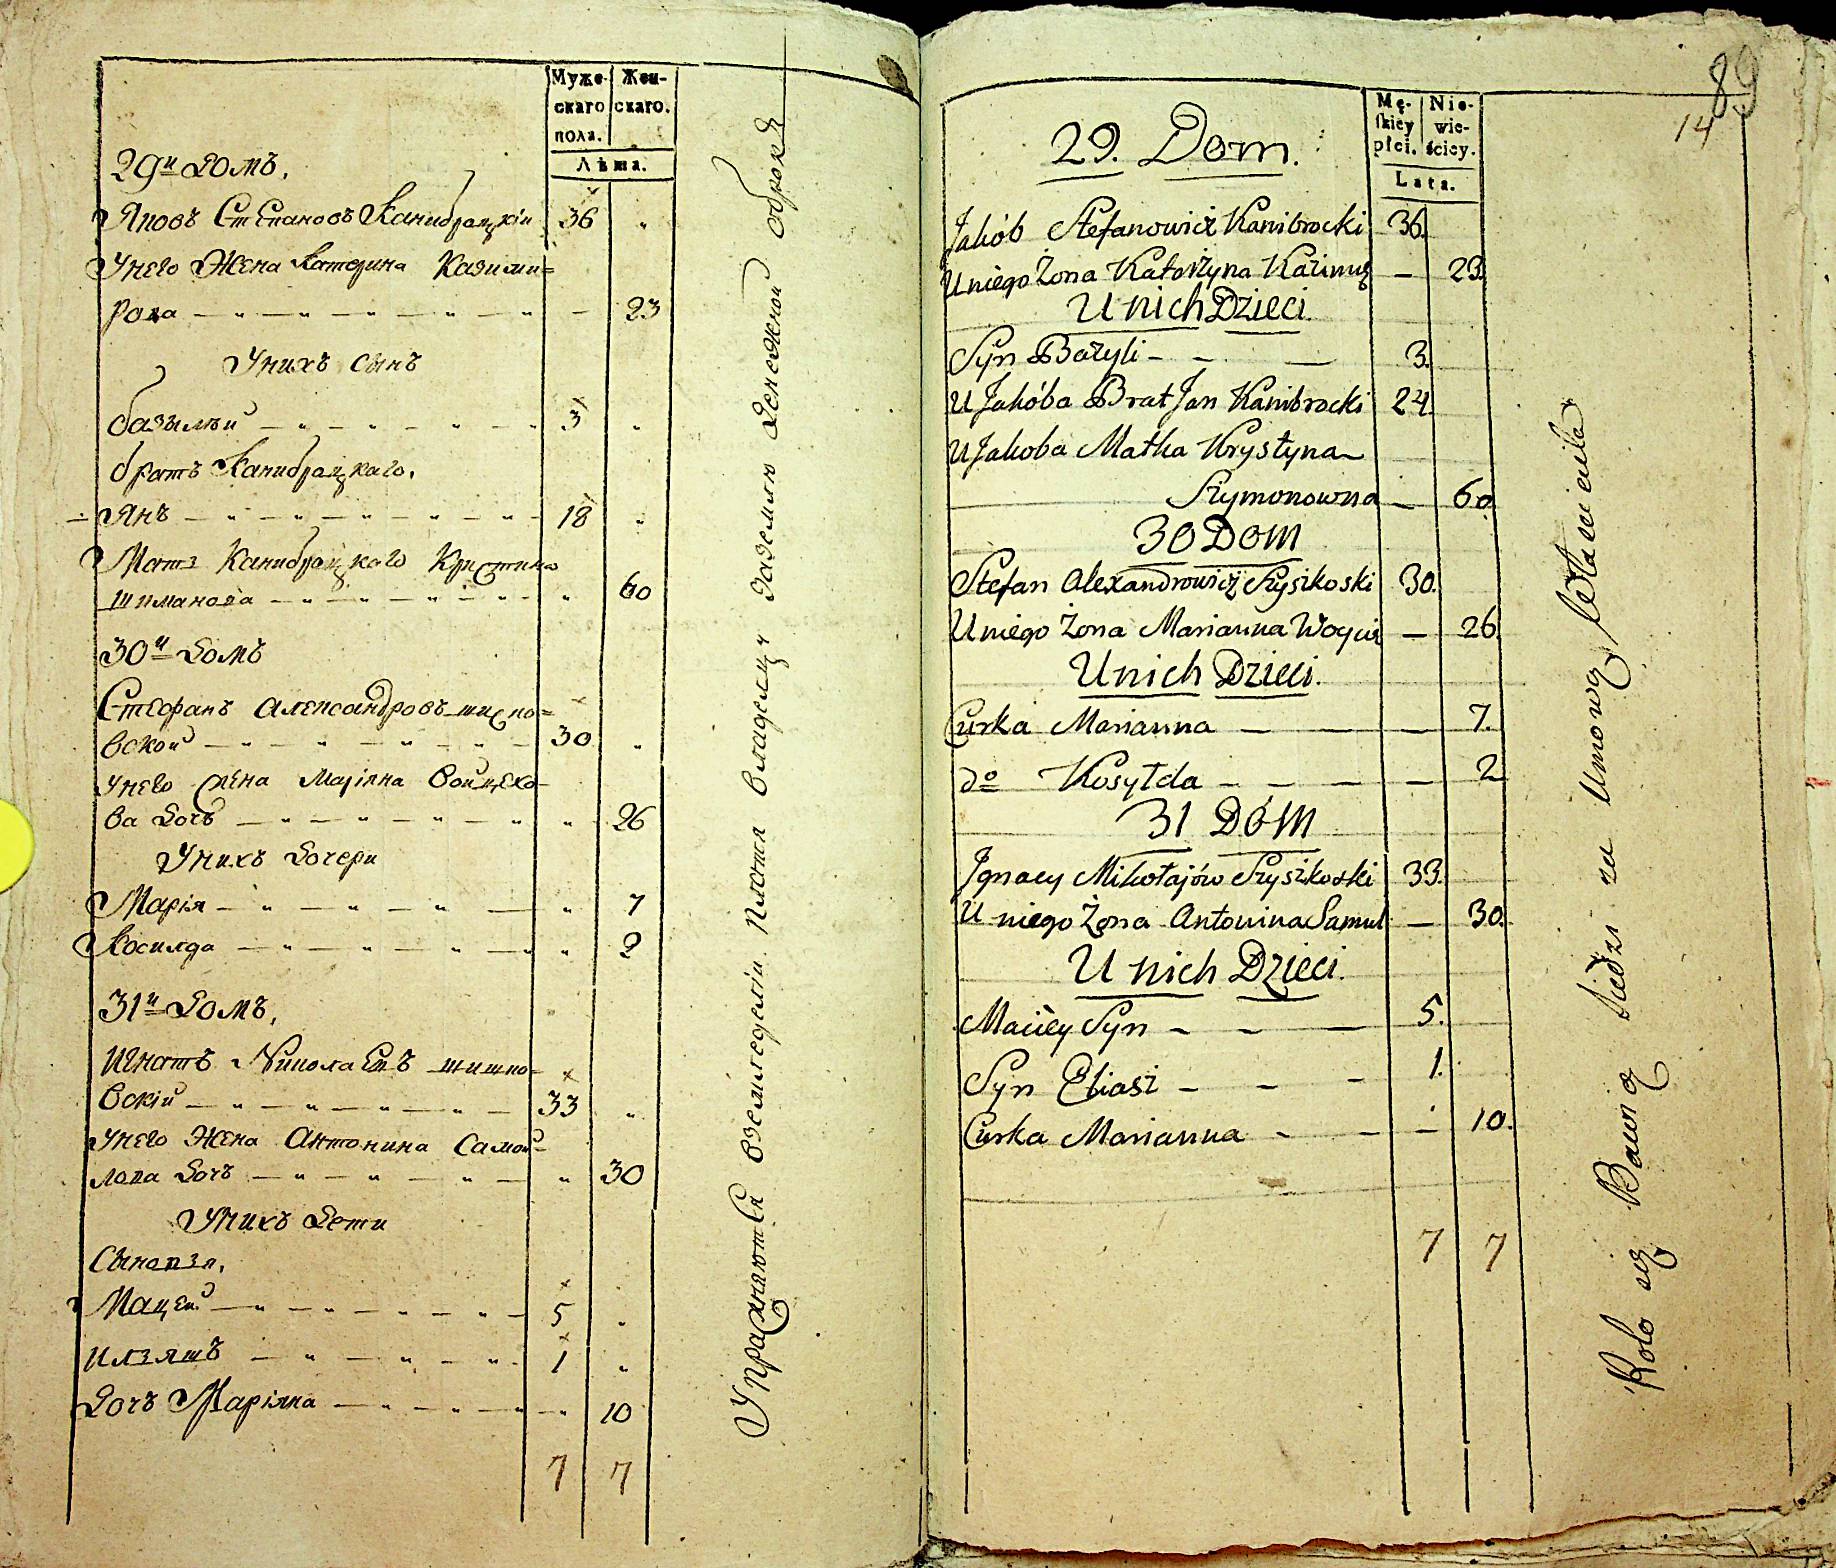 Муже- Жен-
скаго скаго.
пола.
Лѣта.
29й Домъ.
Яковъ Степановъ Канибрацкій 36 "
У него Жена Катерина Казими-
рова — " — " — " — 23
У нихъ сынъ
базылій — " — " — 3 "
братъ Канибрацкаго.
Янъ — " — " — " — 18 "
Мать Канибрацкаго Кристина
шиманова — " — " — " 60
30й Домъ
Стефанъ Александровъ шишко-
вской — " — " — " — 30 "
у него жена Маріяна Войцехо-
ва Дочь — " — " — " 26
У нихъ Дочери
Марія — " — " — " 7
Косилда — " — " — " 2
31й Домъ.
Игнатъ Николаевъ шишко-
вскій — " — " — " — 33 "
у него Жена Антонина Самой-
лова Дочь — " — " — " 30
У нихъ Дети
Сыновья.
Мацей — " — " — " — 5 "
Илзяшъ — " — " — 1 "
Дочь Маріяна — " — " — " 10
7 7
Упражняются Вземледеліи. Платя владельцу заземлю Денежной оброкъ
89
14
Mę- Nie-
skiey wie-
płci. ściey.
Lata.
29. Dom.
Jakób Stefanowicz Kanibrocki 36.
U niego Żona Katarzyna Kazimirz — 23.
U nich Dzieci.
Syn Bazyli — — — 3.
U Jakóba Brat Jan Kanibrocki 24
U Jakoba Matka Krystyna
Szymonowna — 60.
30 Dom
Stefan Alexandrowicz Szyszkoski 30.
U niego Żona Marianna Woycie — 26.
U nich Dzieci.
Curka Marianna — — — 7.
do Kosyłda — — — — 2
31 Dóm
Jgnacy Mikołajów Szyszkoski 33.
U niego Żona Antonina Samul — 30.
U nich Dzieci.
Maciéy Syn — — — 5.
Syn Eliasz — — — 1.
Curka Marianna — — — 10.
7 7
Rolo się Bawią siedzi na Umową